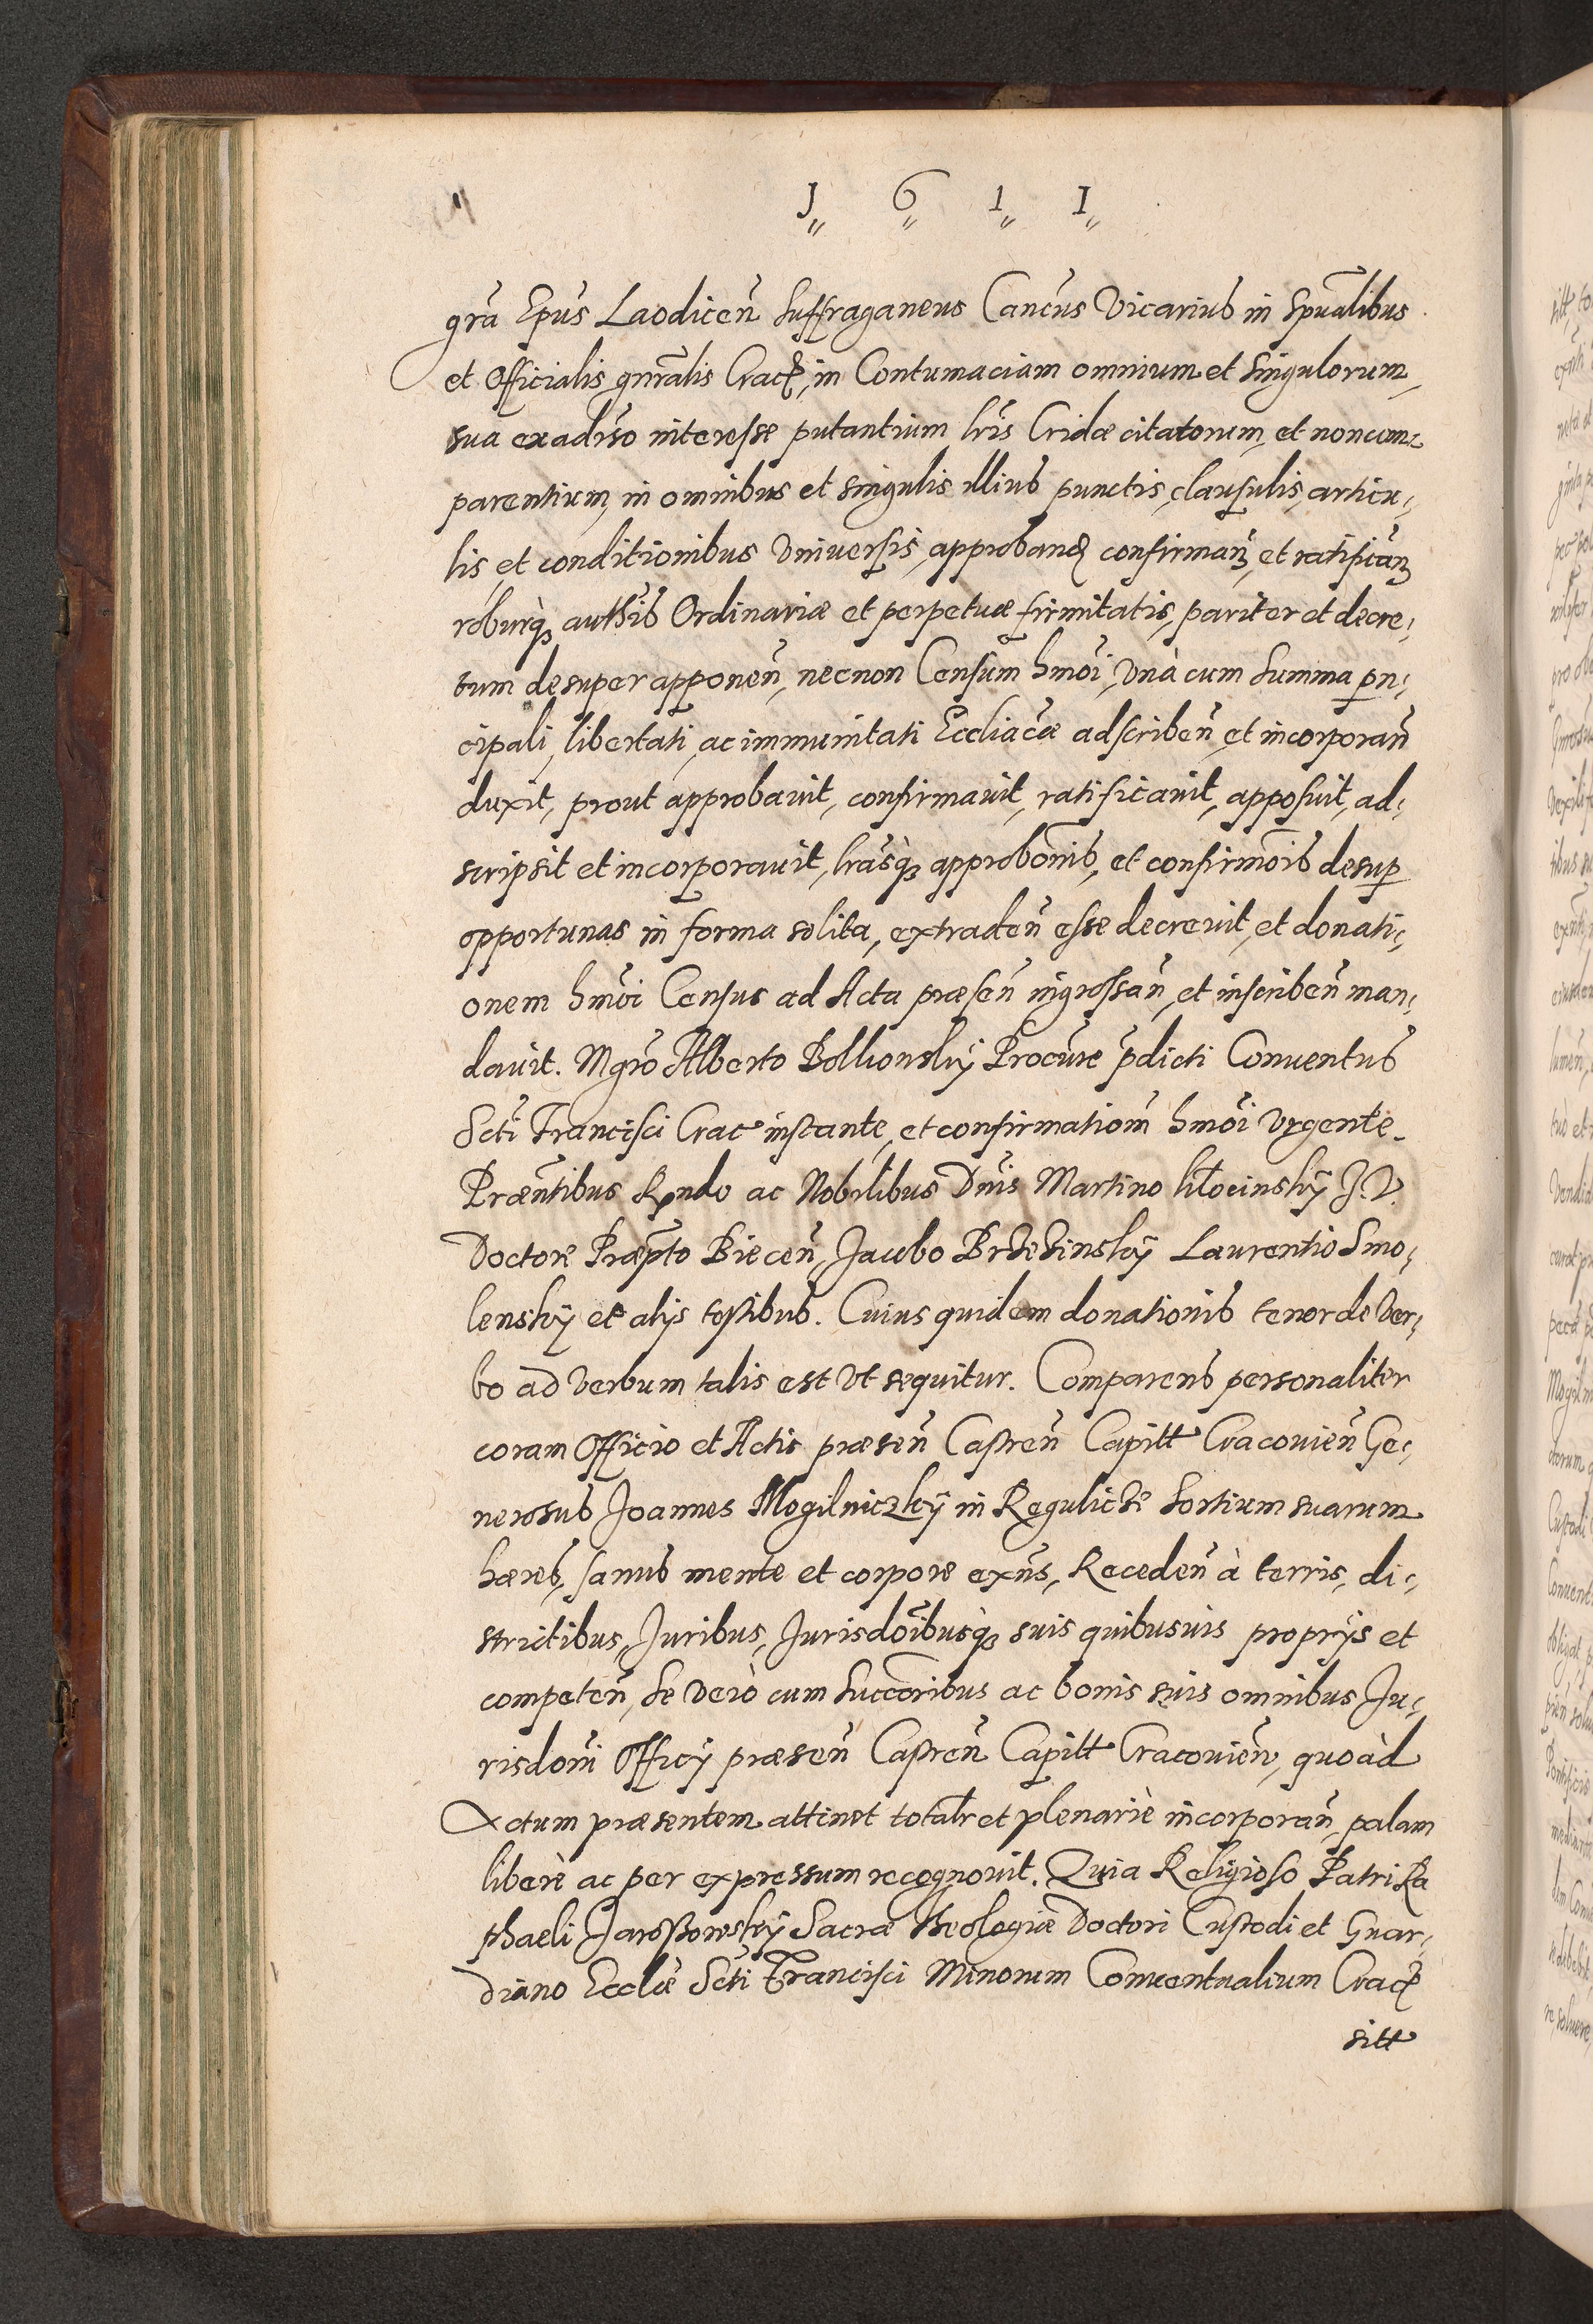 J 6 1 1
gr̃a Epũs Laodiceñ Suffraganeus Cancũs Vicarius in Spũalibus
et Officialis gnr̃alis Crac̃, in Contumaciam omnium et Singulorum,
sua ex adũso interesse putantium lr̃is Cridæ citatorum, et noncom:
parentium, in omnibus et singulis illius punctis, clausulis, articu:
lis, et conditionibus Vniuersis, approband̃ confirmañ, et ratificañ
roburq̃ɜ authĩs Ordinariæ et perpetuæ firmitatis, pariter et decre:
tum desuper apponeñ, necnon Censum hm̃oi, Vnà cum Summa prin:
cipali, libertati, ac immunitati Eccliacæ̃ adscribeñ, et incorporañ
duxit, prout approbauit, confirmauit, ratificauit, apposuit, ad:
scripsit et incorporauit, lr̃asq̀ɜ approbõnis, et confirmõis desup̱
opportunas in forma solita, extradeñ esse decreuit, et donati:
onem hm̃oi Census ad Acta præseñ ingrossañ, et inscribeñ man:
dauit. Mgrõ Alberto Procũre p̃dicti Conuentus
Scti Francisci Crac instante, et confirmatiom̃ hm̃oi Vrgente.
Præñtibus Rndo ac Nobilibus Dnĩs Martino Kłocinskÿ J. V.
Doctore Præpto Bieceñ, Jacobo Laurentio Smo:
lenskÿ et alÿs testibus. Cuius quidem donationis tenor de Ver:
bo ad Verbum talis est Vt sequitur. Comparens personaliter
coram Officio et Actis præseñ Castreñ Capitt Cracouieñ Ge:
nerosus Joannes Mogilniczkÿ in Sortium suarum
hæres, sanus mente et corpore exñs, Recedeñ à terris, di:
strictibus, Juribus, Jurisdõibusq̀ɜ suis quibusuis proprÿs et
competeñ, Se Verò cum Succõribus ac bonis suis omnibus, Ju:
risdoñi Officÿ præseñ Castreñ Capitt Cracouieñ, quoàd
Actum præsentem attinet totalr̃ et plenariè incorporañ, palam
liberè ac per expressum recognouit. Quia Religioso Patri Ra
phaeli Jaroszowskÿ Sacræ Theologiæ Doctori Custodi et Guar:
diano Ecclæ̃ Scti Francisci Minorum Conuentualium Crac̃
sitt